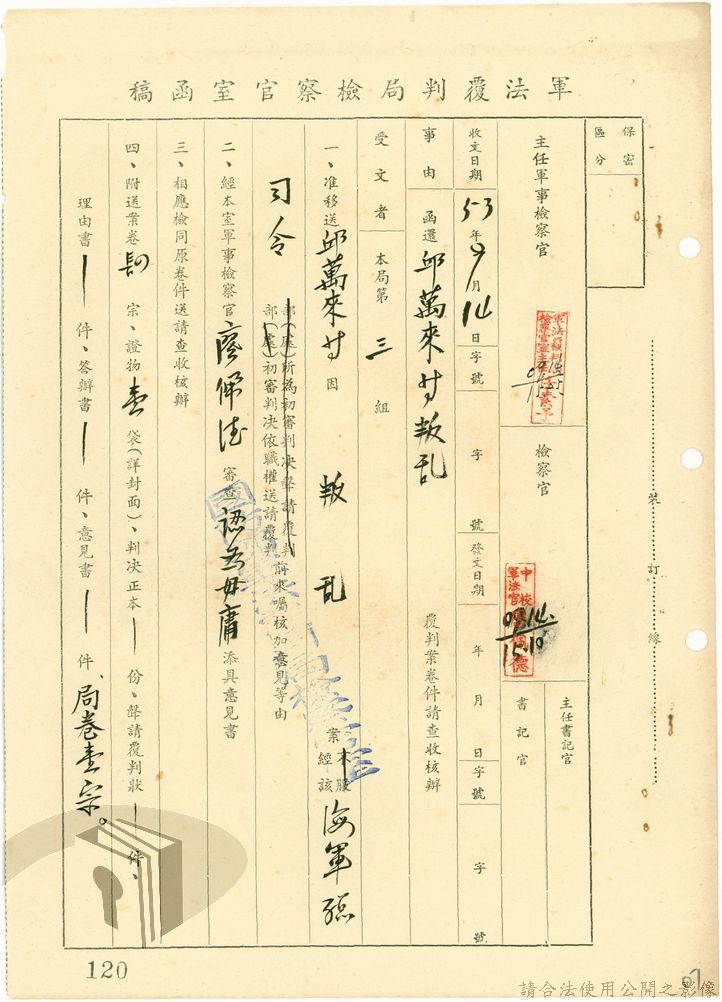 軍法覆判局檢察官室函稿
保密
區分
主任軍事檢察官
檢察官
主任書記官
書記官
中校
軍法官
09.14.
15.10
收文日期 53年9月14日 字號 字 號 發文日期 年 月 日 字號 字 號
事由 函還邱萬來等叛乱 覆判案卷件請查收核辦
受文者 本局第三組
一、准移送邱萬來等因 叛乱 案 經 本服 該 海軍總
司令 部(處)所為初審判決聲請覆判
部(處)初審判決依職權送請覆判 前來囑核加意見等由
二、經本室軍事檢察官廖佩德審查認為毋庸添具意見書
三、相應檢同原卷件送請查收核辦
四、附送案卷 宗、證物壹袋(詳封面)、判決正本—份、聲請覆判狀—件、
理由書—件、答辯書—件、意見書—件、局卷壹宗。
裝訂線
120
請合法使用公開之影像